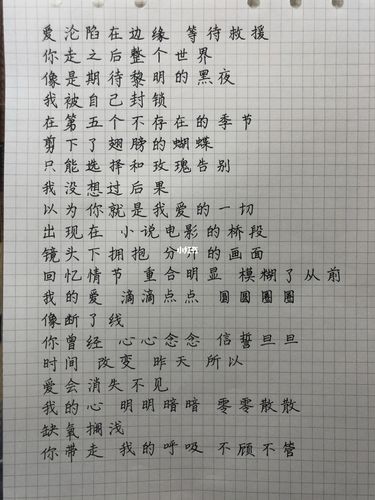 爱沦陷在边缘 等待救援
你走之后整个世界
像是期待黎明的黑夜
我被自己封锁
在第五个不存在的季节
剪下了翅膀的蝴蝶
只能选择和玫瑰告别
我没想过后果
以为你就是我爱的一切
出现在 小说电影的桥段
镜头下拥抱 分开的画面
回忆情节 重合明显 模糊了从前
我的爱 滴滴点点 圆圆圈圈
像断了线
你曾经 心心念念 信誓旦旦
时间 改变 昨天 所以
爱会消失不见
我的心 明明暗暗 零零散散
缺氧搁浅
你带走 我的呼吸 不顾不管
小红书